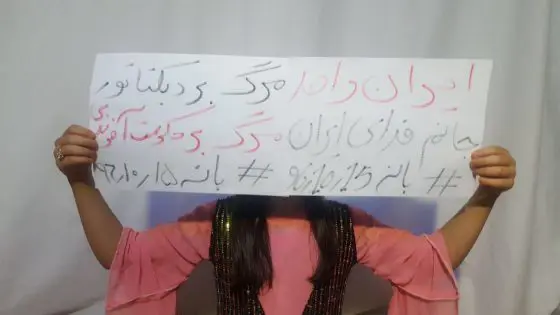 ایران مرگ بر دیکتاتور
جانم فدای ایران مرگ بر حکومت آخوندی
# بانه 96/10/15 # بانه ۹۶/۱۰/۱۵